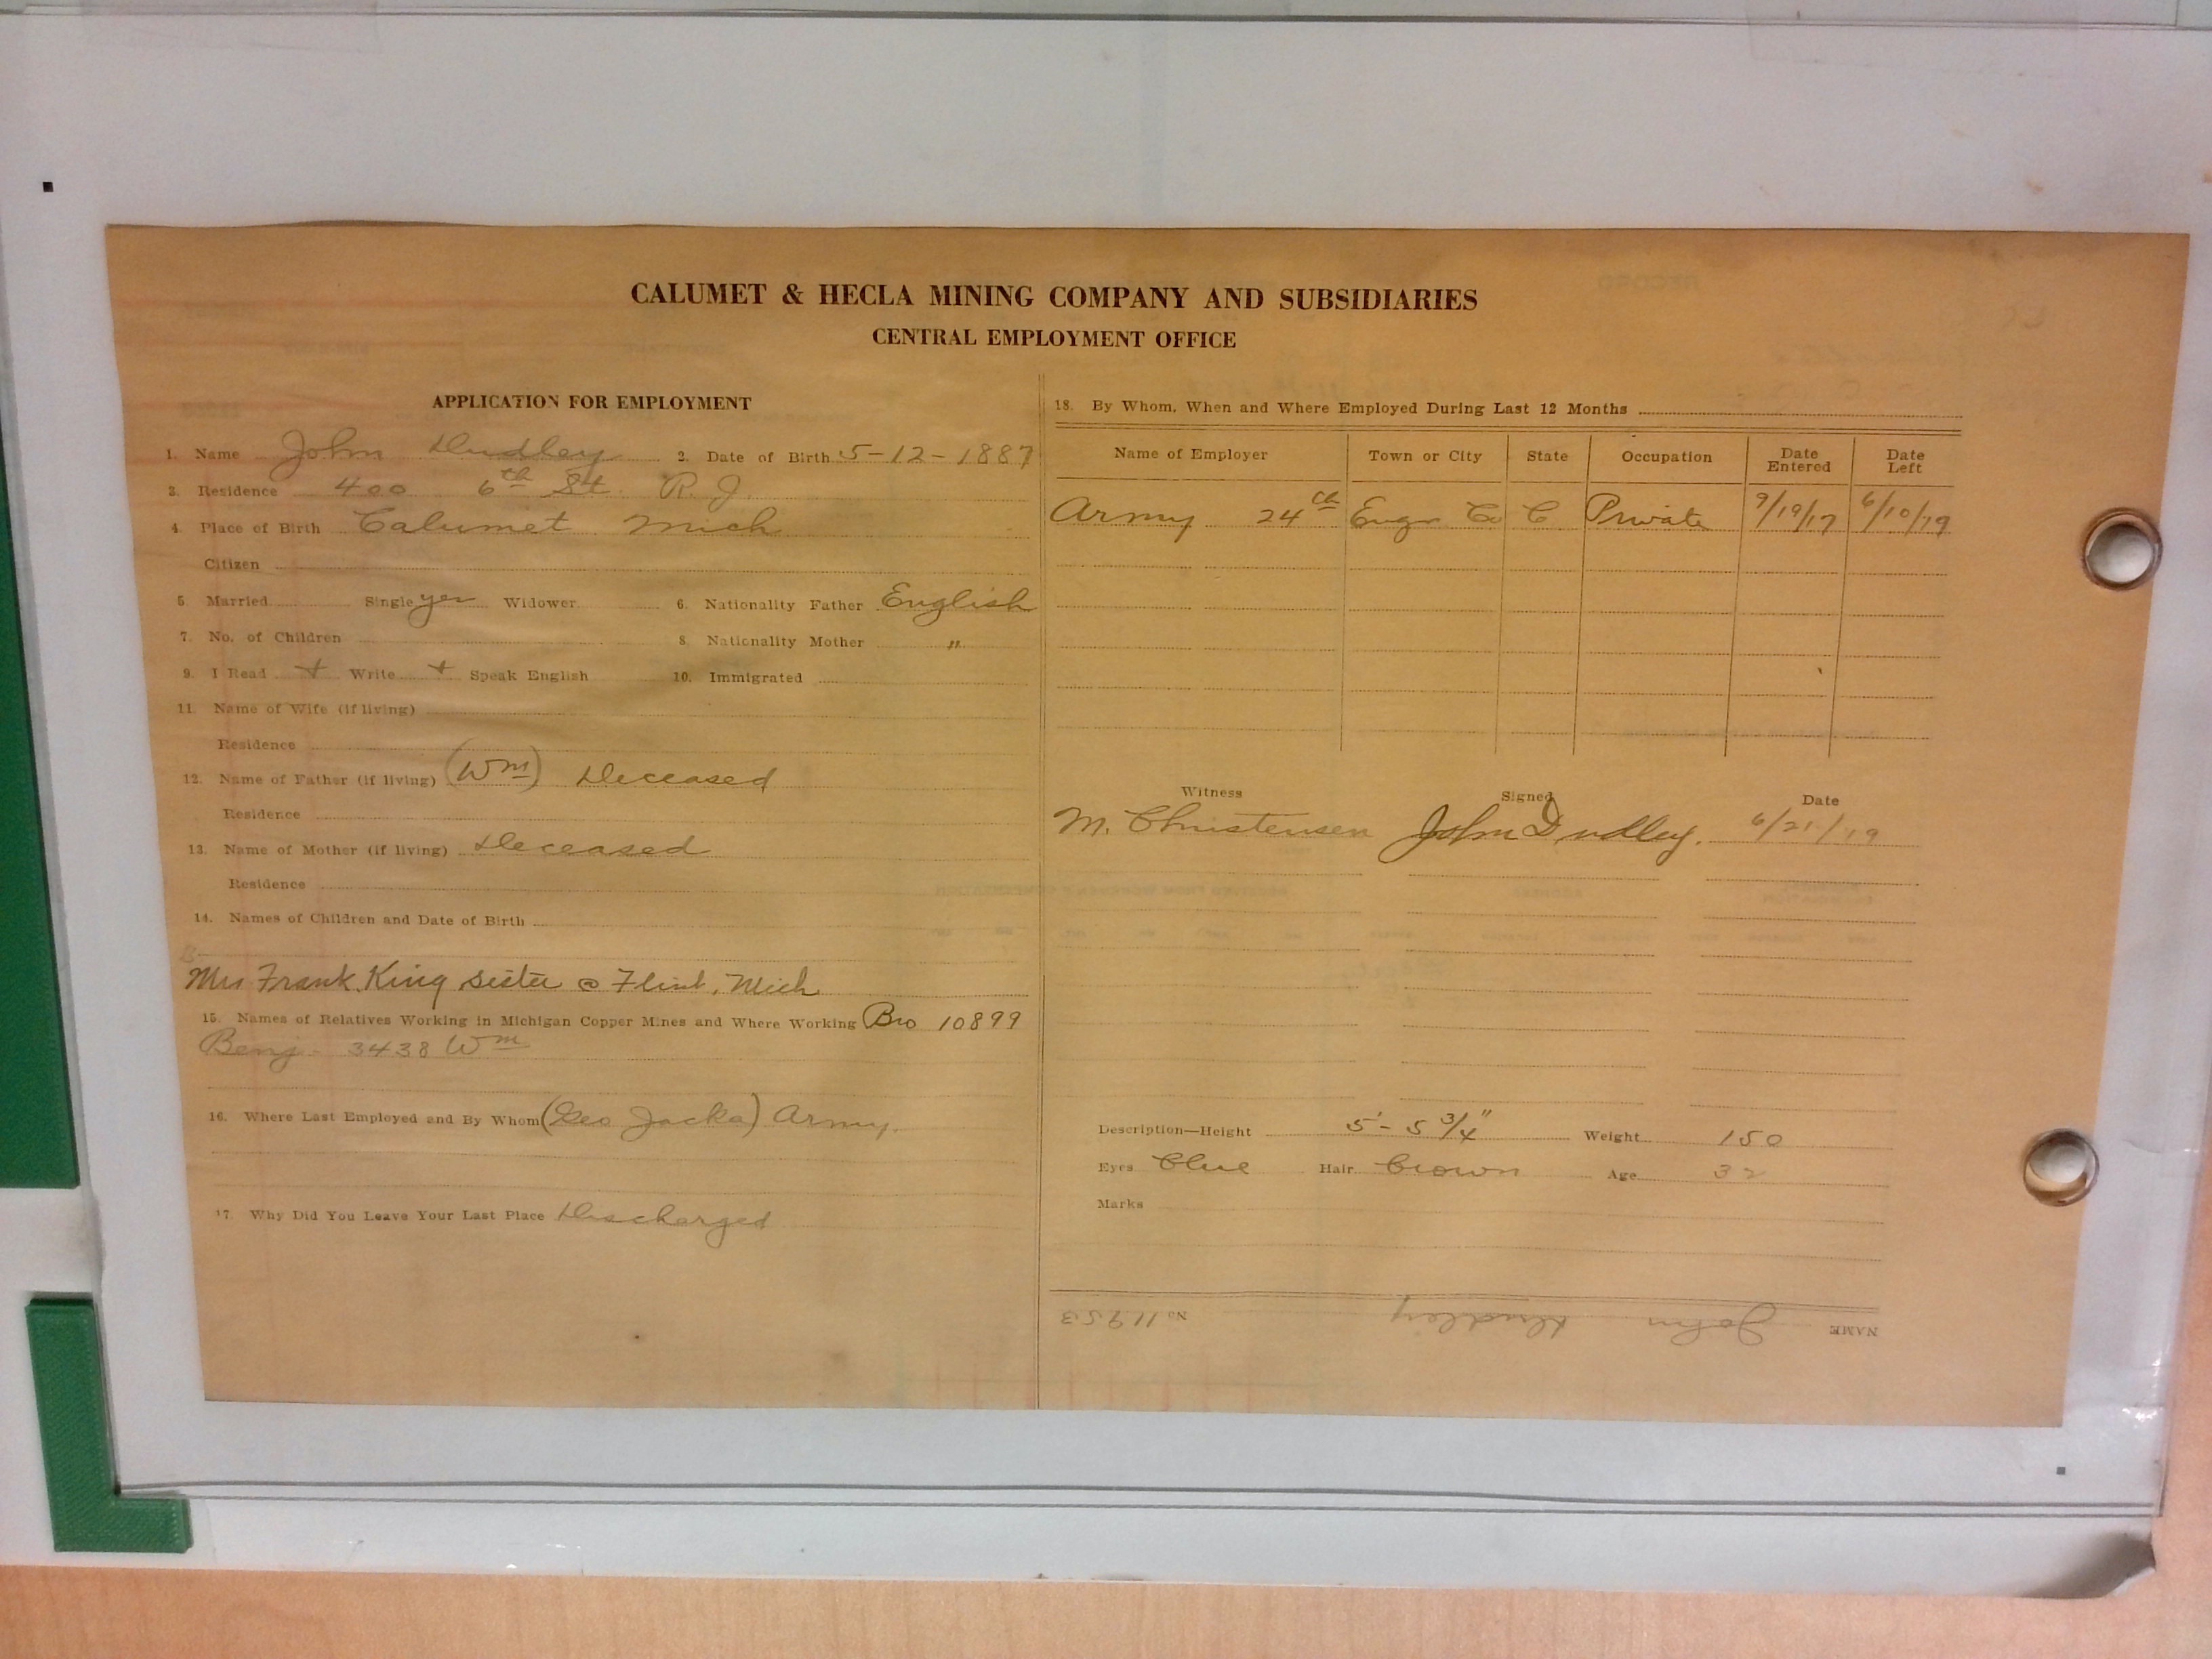 CALUMET & HECLA MINING COMPANY AND SUBSIDIARIES
CENTRAL EMPLOYMENT OFFICE
APPLICATION FOR EMPLOYMENT
1. Name John Dudley 2. Date of Birth 5-12-1887
3. Residence 400 6th St. R. J.
4. Place of Birth Calumet Mich
Citizen
5. Married Single yes Widower
6. Nationality Father English
7. No. of Children
8. Nationality Mother "
9. I Read + Write + Speak English
10. Immigrated
11. Name of Wife (if living)
Residence
12. Name of Father (if living) (Wm) Deceased
Residence
13. Name of Mother (if living) Deceased
Residence
14. Names of Children and Date of Birth
Mrs Frank King sister @ Flint, Mich
15. Names of Relatives Working in Michigan Copper Mines and Where Working Bro 10899
Benj - 3438 Wm
16. Where Last Employed and By Whom (Geo Jacka) Army.
17. Why Did You Leave Your Last Place Discharged
18. By Whom, When and Where Employed During Last 12 Months
Name of Employer Town or City State Occupation Date Entered Date Left
Army 24th Engr Co C Private 9/19/17 6/10/19
Witness Signed Date
M. Christensen John Dudley. 6/21/19
Description—Height 5'-5 3/4" Weight 150
Eyes Blue Hair Brown Age 32
Marks
NAME John Dudley No 11953